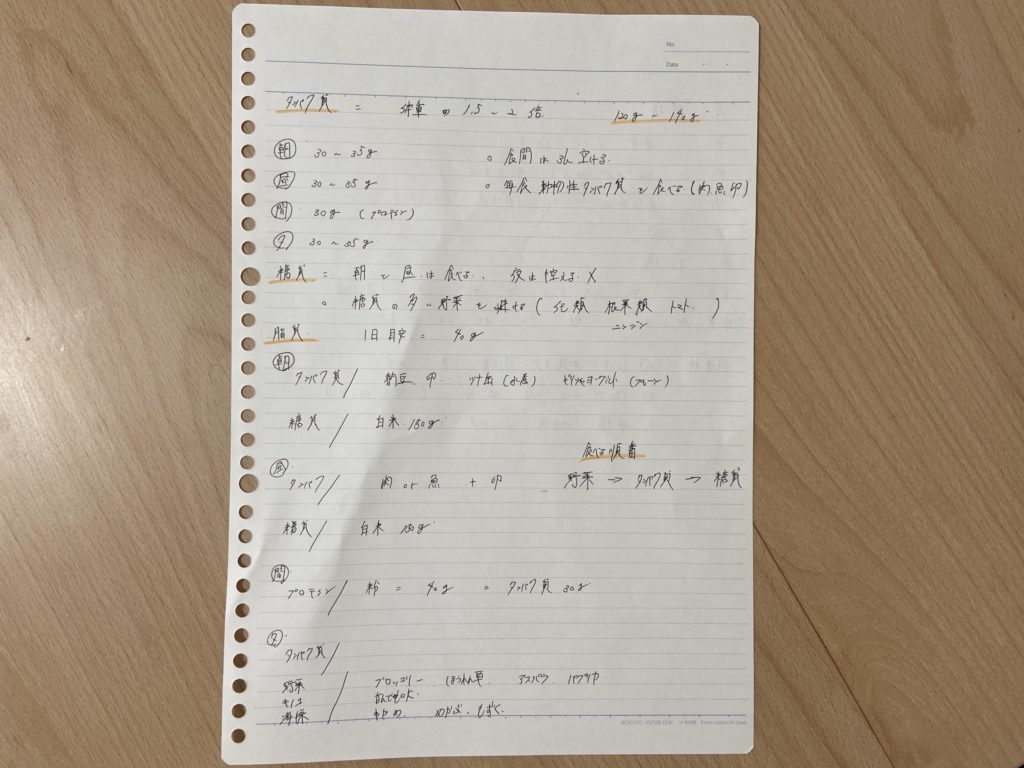 No.
Date
タンパク質 = 体重の1.5〜2倍. 120g〜140g.
朝 30〜35g ○ 食間は3h空ける.
昼 30〜35g ○ 毎食動物性タンパク質を食べる(肉 魚 卵)
間 30g (プロテイン)
夕 30〜35g.
糖質 = 朝と昼は食べる、夜は控える. X
○ 糖質の多い野菜を避ける( 根菜類 トマト. )
ニンジン
脂質. 1日目安 = 40g
朝
タンパク質/ 納豆 卵. (水煮) ギリシャヨーグルト(プレーン)
糖質/ 白米 150g.
食べる順番
昼
タンパク/ 肉 or 魚 + 卵 野菜 → タンパク質 → 糖質
糖質/ 白米 150g.
間
プロテイン/ 粉 = 40g = タンパク質 30g
夕.
タンパク質/
野菜 / ブロッコリー. ほうれん草. アスパラ パプリカ
キノコ なんでもOK.
海藻 わかめ めかぶ、もずく.
KOKUYO LOOSE-LEAF